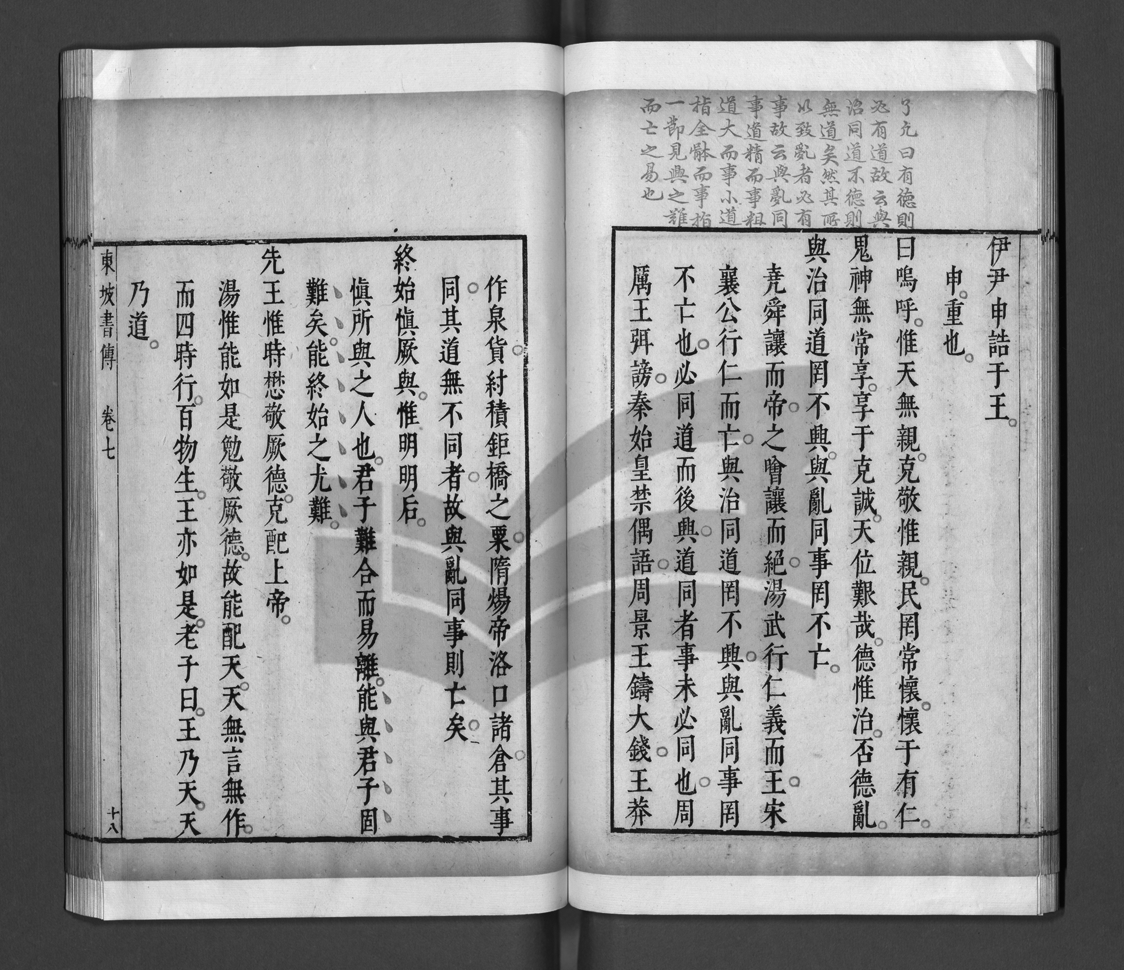 了凡曰有德則
必有道故云與
治同道不德則
無道矣然其所
以致亂者必有
事故云與亂同
事道精而事粗
道大而事小道
指全骵而事指
一節見興之難
而亡之易也
伊尹申誥于王。
申。重也。
曰嗚呼。惟天無親。克敬惟親。民罔常懷。懷于有仁。
鬼神無常享。享于克誠。天位艱哉。德惟治。否德亂。
與治同道罔不興。與亂同事罔不亡。
堯舜讓而帝。之噲讓而絕。湯武行仁義而王。宋
襄公行仁而亡。與治同道罔不興。與亂同事罔
不亡也。必同道而後興。道同者事未必同也。周
厲王弭謗。秦始皇禁偶語。周景王鑄大錢。王莽
作泉貨。紂積鉅橋之粟。隋煬帝洛口諸倉。其事
同。其道無不同者。故與亂同事則亡矣。
終始慎厥與。惟明明后。
慎所與之人也。君子難合而易離。能與君子固
難矣。能終始之尤難。
先王惟時懋敬厥德。克配上帝。
湯惟能如是勉敬厥德。故能配天。天無言無作。
而四時行。百物生。王亦如是。老子曰。王乃天。天
乃道。
東坡書傳 卷七
十八